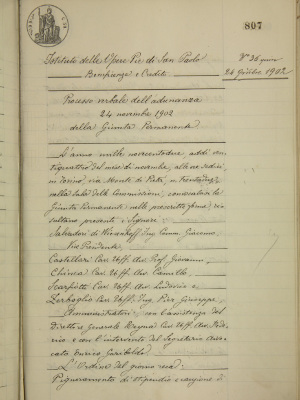 807
Istituto delle Opere Pie di San Paolo
Beneficenza e Credito
24 9mbre 1902
Processo verbale dell'adunanza
24 novembre 1902
della Giunta Permanente
L'anno mille novecentodue, addì ven-
tiquattro del mese di novembre, alle ore sedici
in Torino, via Monte di Pietà,
nella Sala delle Commissioni, convocatasi la
Giunta Permanente nelle prescritte forme, ri-
sultano presenti i Signori:
Salvadori di Wiesenhoff Ing. Comm. Giacomo,
Vice Presidente,
Castellari Cav. Uff. Avv. Prof. Giovanni,
Chiesa Cav. Uff. Avv. Camillo,
Scarfiotti Cav. Uff. Avv. Ludovico e
Zerboglio Cav. Uff. Ing. Pier Giuseppe,
coll'assistenza del
Direttore Generale Cav. Uff. Avv.
e con l'intervento del Segretario Avv-
cato Enrico Garibaldi.
L'Ordine del giorno reca:
Pignoramento di stipendio e cessione di